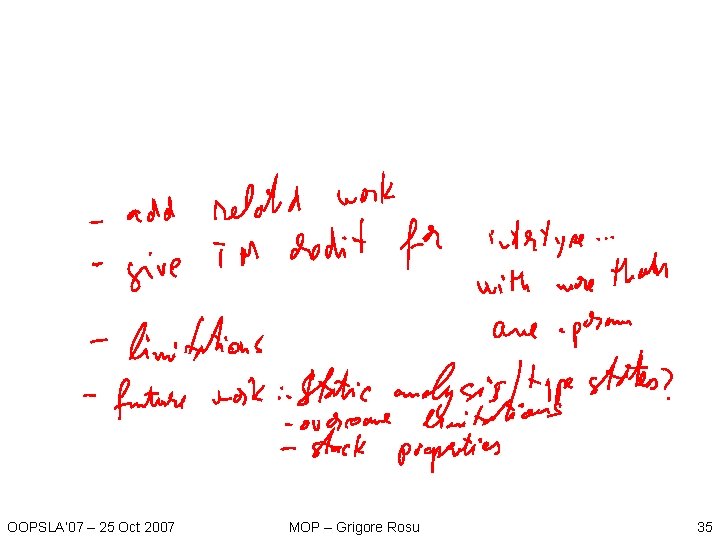 - add related work
- give TM credit for intertype...
with more than
one person
- limitations
- future work :- static analysis/type states?
- overcome limitations
- stack properties
OOPSLA'07 – 25 Oct 2007 MOP – Grigore Rosu 35